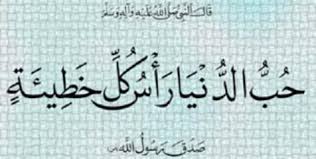 قال النبي صلى الله عليه وآله وسلم
حُبُّ الدُّنْيَا رَأْسُ كُلِّ خَطِيئَةٍ
صدق رسول الله